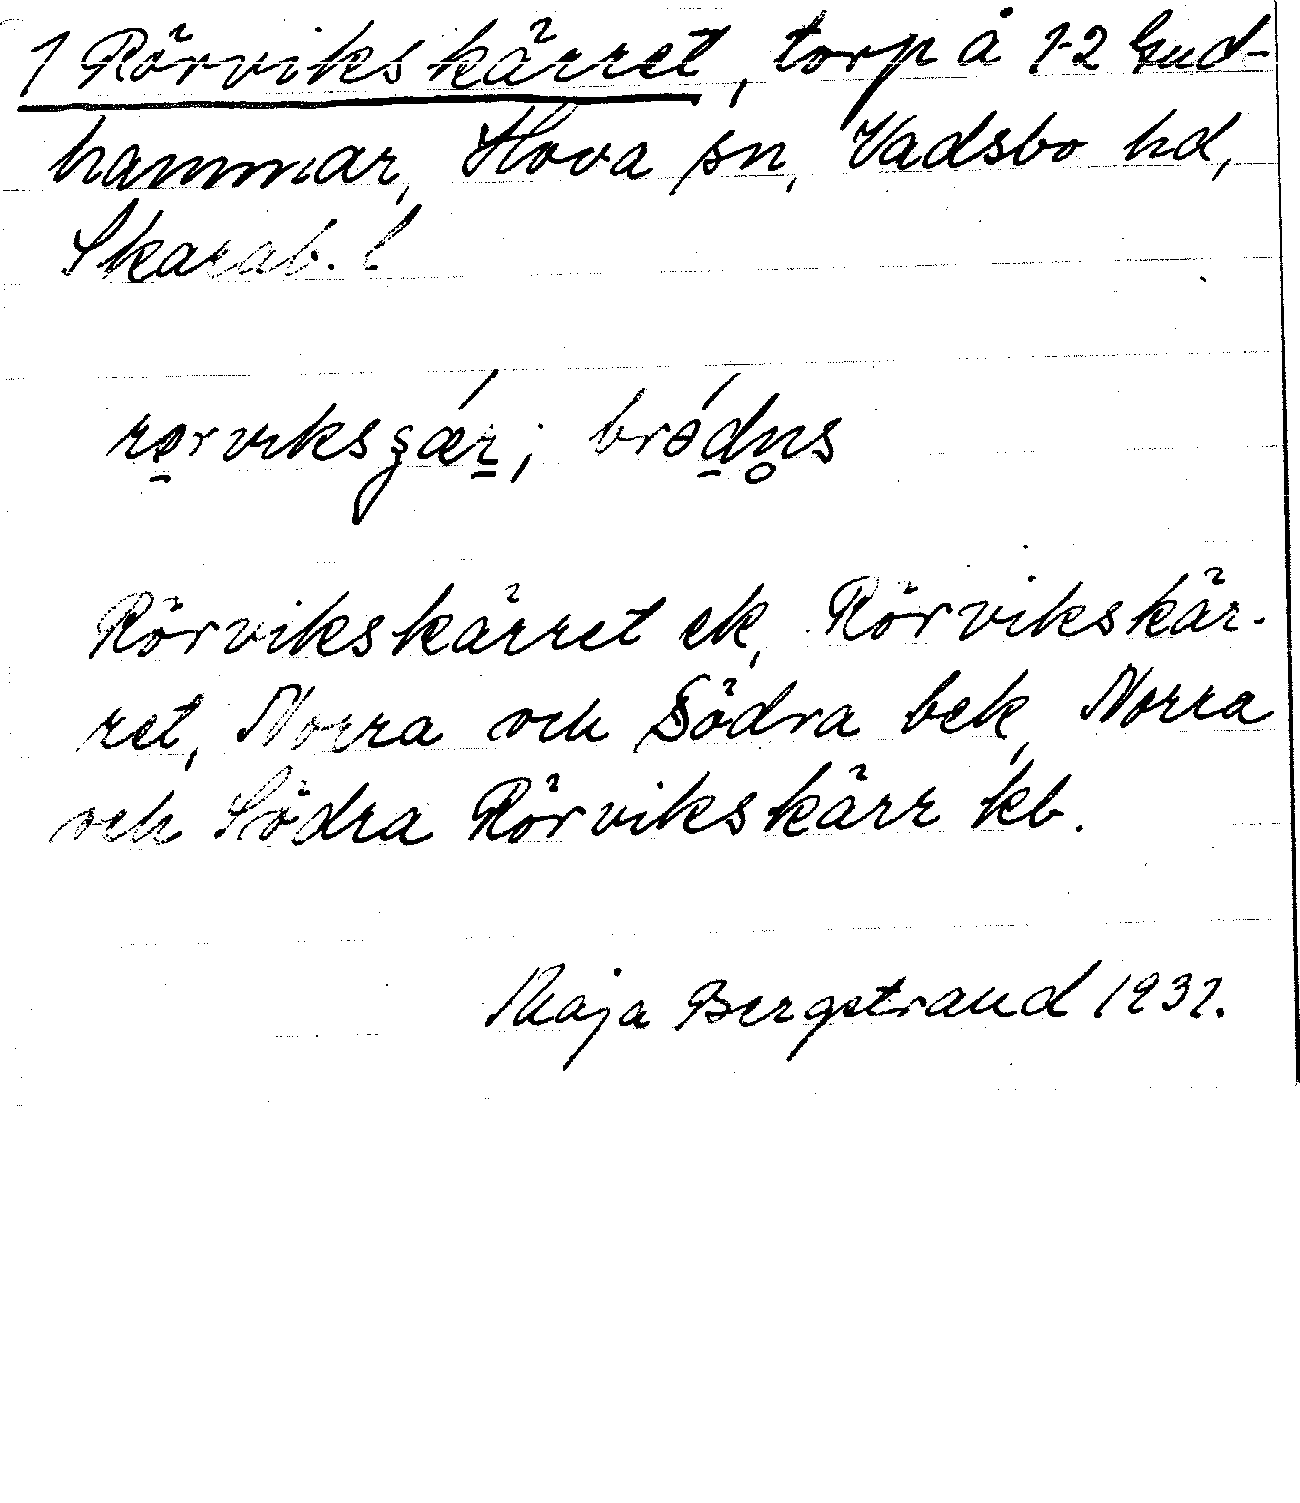 1 Rörvikskärret, torp å 1-2 Gud-
hammar, Hova sn, Vadsbo hd,
Skarab. l
Rörvikskärret ek, Rörvikskär-
ret, Norra och Södra bek, Norra
och Södra Rörvikskärr kb.
Maja Bergstrand 1931.